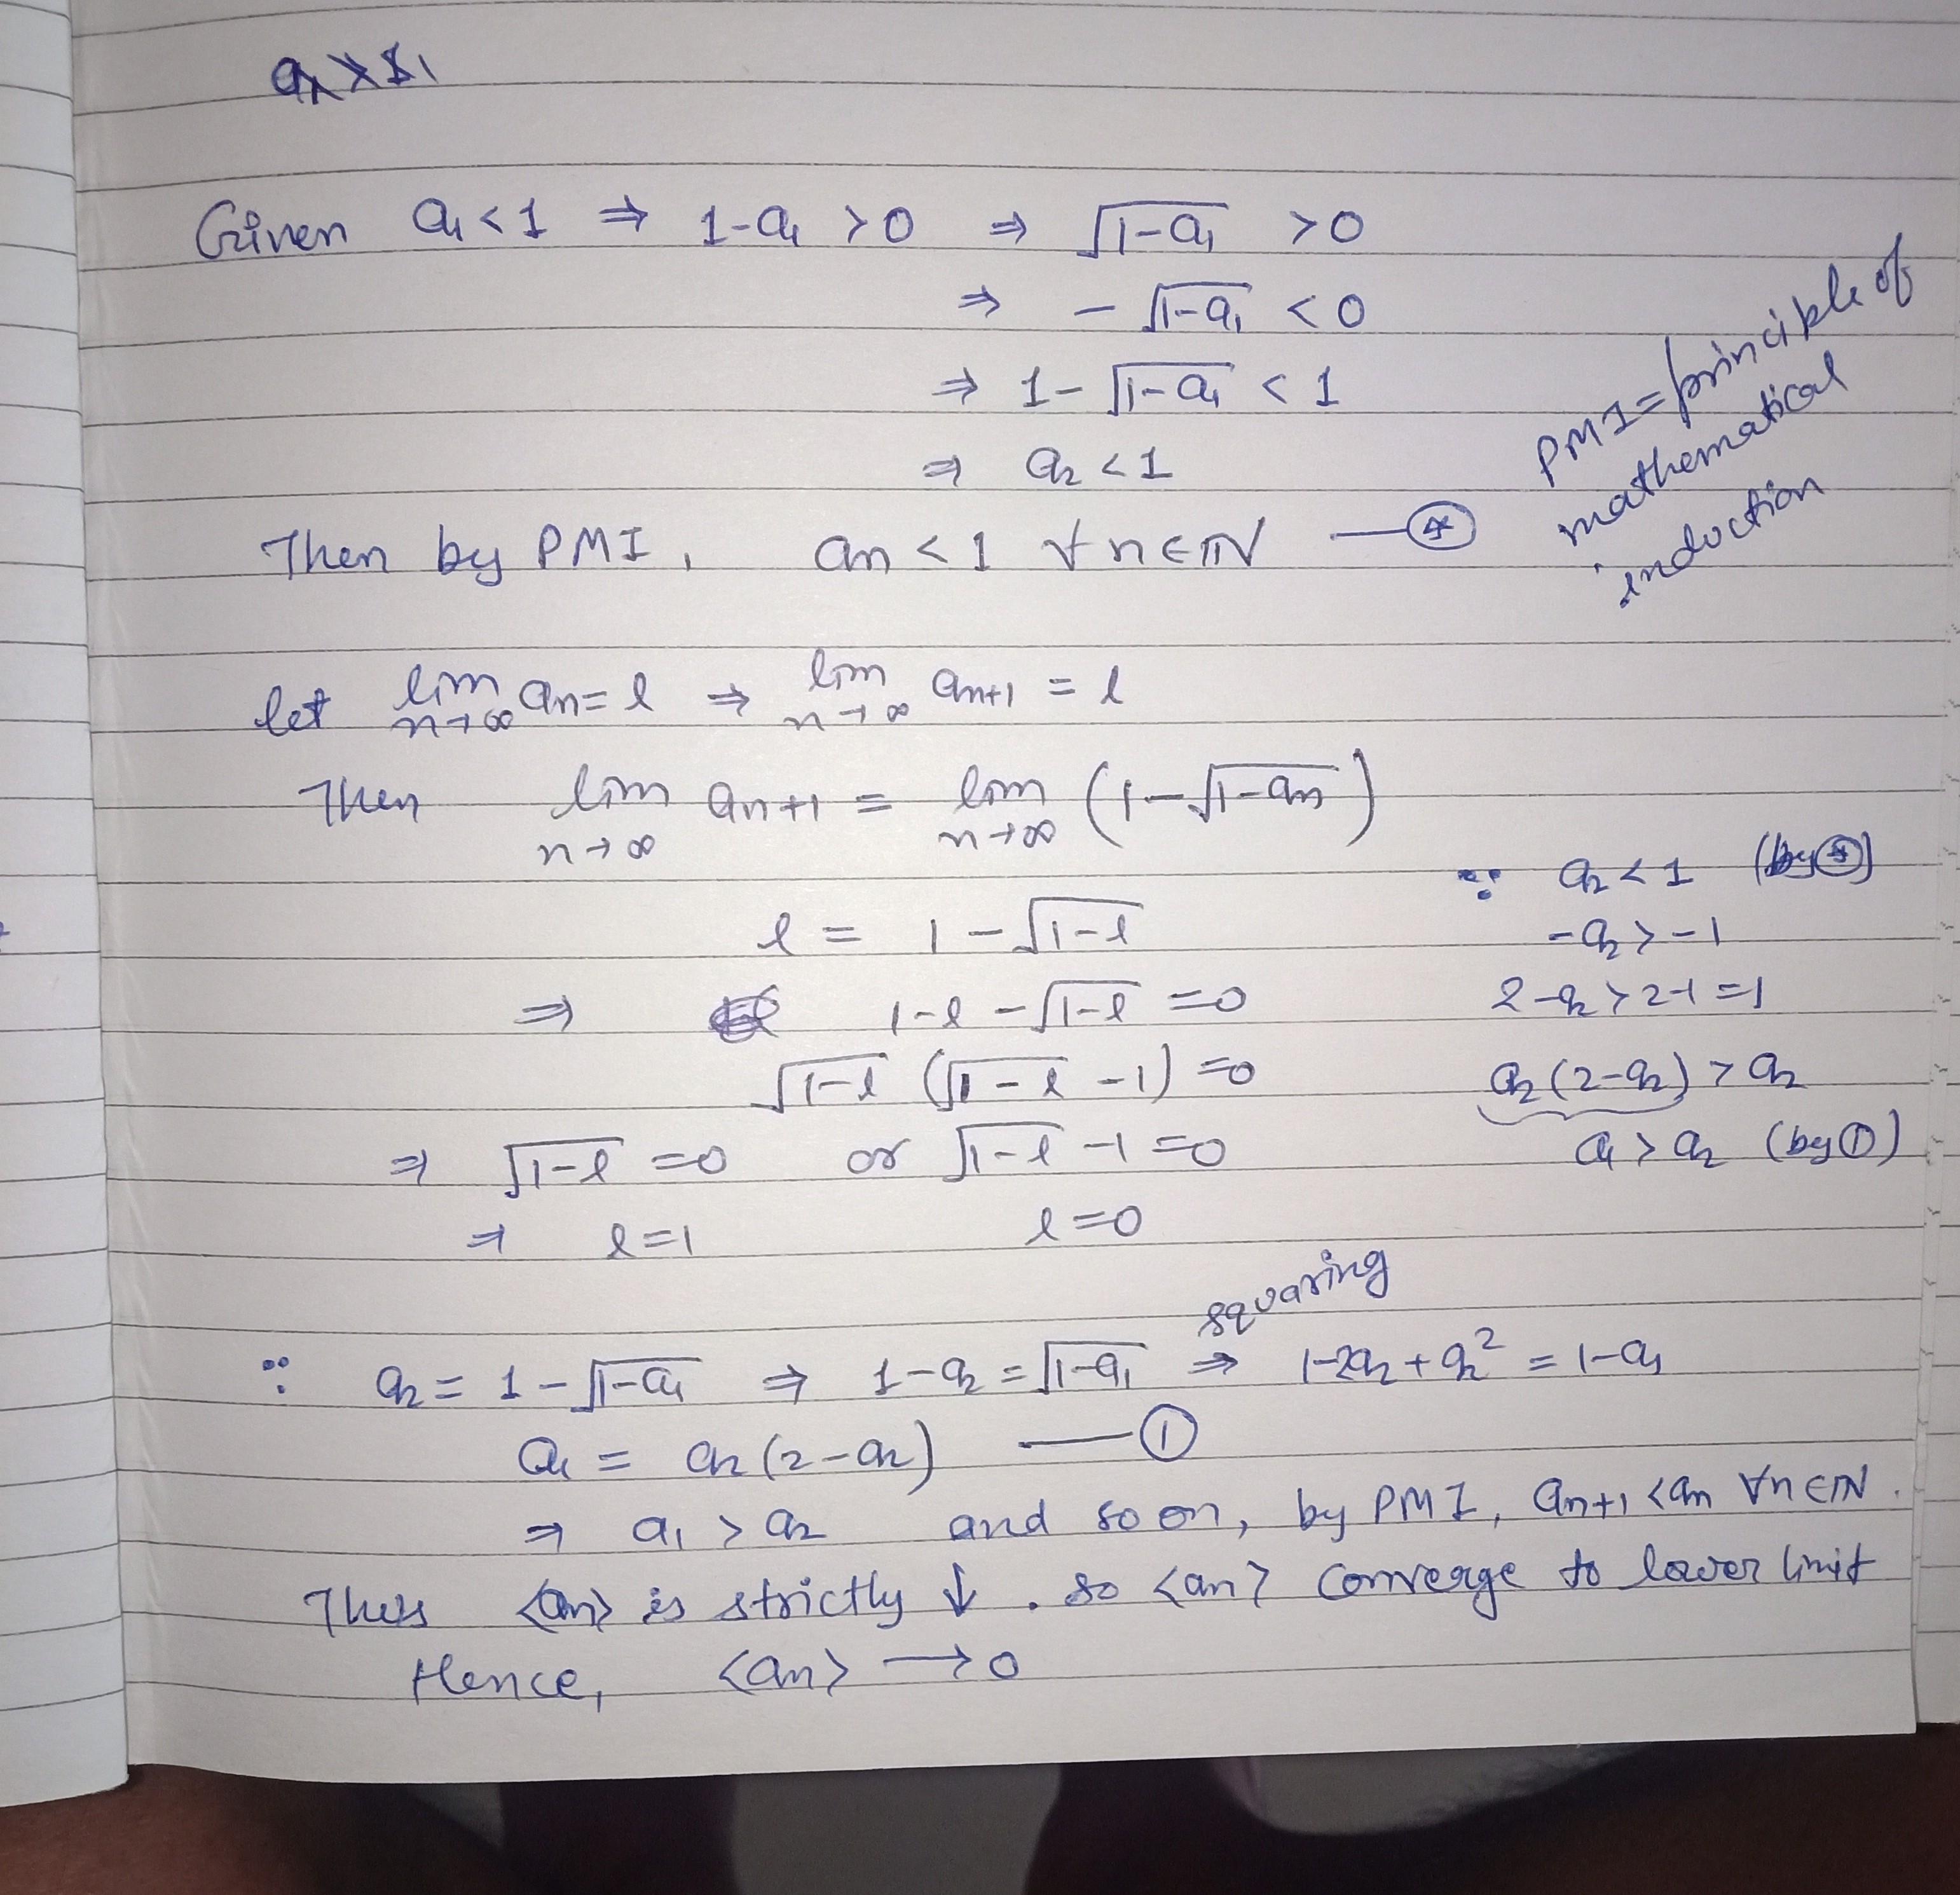 Given a₁ < 1 ⇒ 1-a₁ > 0 ⇒ √(1-a₁) > 0
⇒ - √(1-a₁) < 0
⇒ 1 - √(1-a₁) < 1
⇒ a₂ < 1
Then by PMI, an < 1 ∀ n ∈ ℕ —(*)
PMI = principle of
mathematical
induction
let lim n→∞ an = l ⇒ lim n→∞ an+1 = l
Then lim n→∞ an+1 = lim n→∞ (1-√(1-an))
l = 1 - √(1-l)
⇒ 1-l - √(1-l) = 0
√(1-l) (√(1-l) - 1) = 0
⇒ √(1-l) = 0 or √(1-l) - 1 = 0
⇒ l = 1 l = 0
∵ a₂ < 1 (by (*))
-a₂ > -1
2-a₂ > 2-1 = 1
a₂(2-a₂) > a₂
a₁ > a₂ (by ①)
squaring
∵ a₂ = 1 - √(1-a₁) ⇒ 1-a₂ = √(1-a₁) ⇒ 1-2a₂ + a₂² = 1-a₁
a₁ = a₂(2-a₂) —①
⇒ a₁ > a₂ and so on, by PMI, an+1 < an ∀ n ∈ ℕ.
Thus <an> is strictly ↓. so <an> converge to lower limit
Hence, <an> → 0